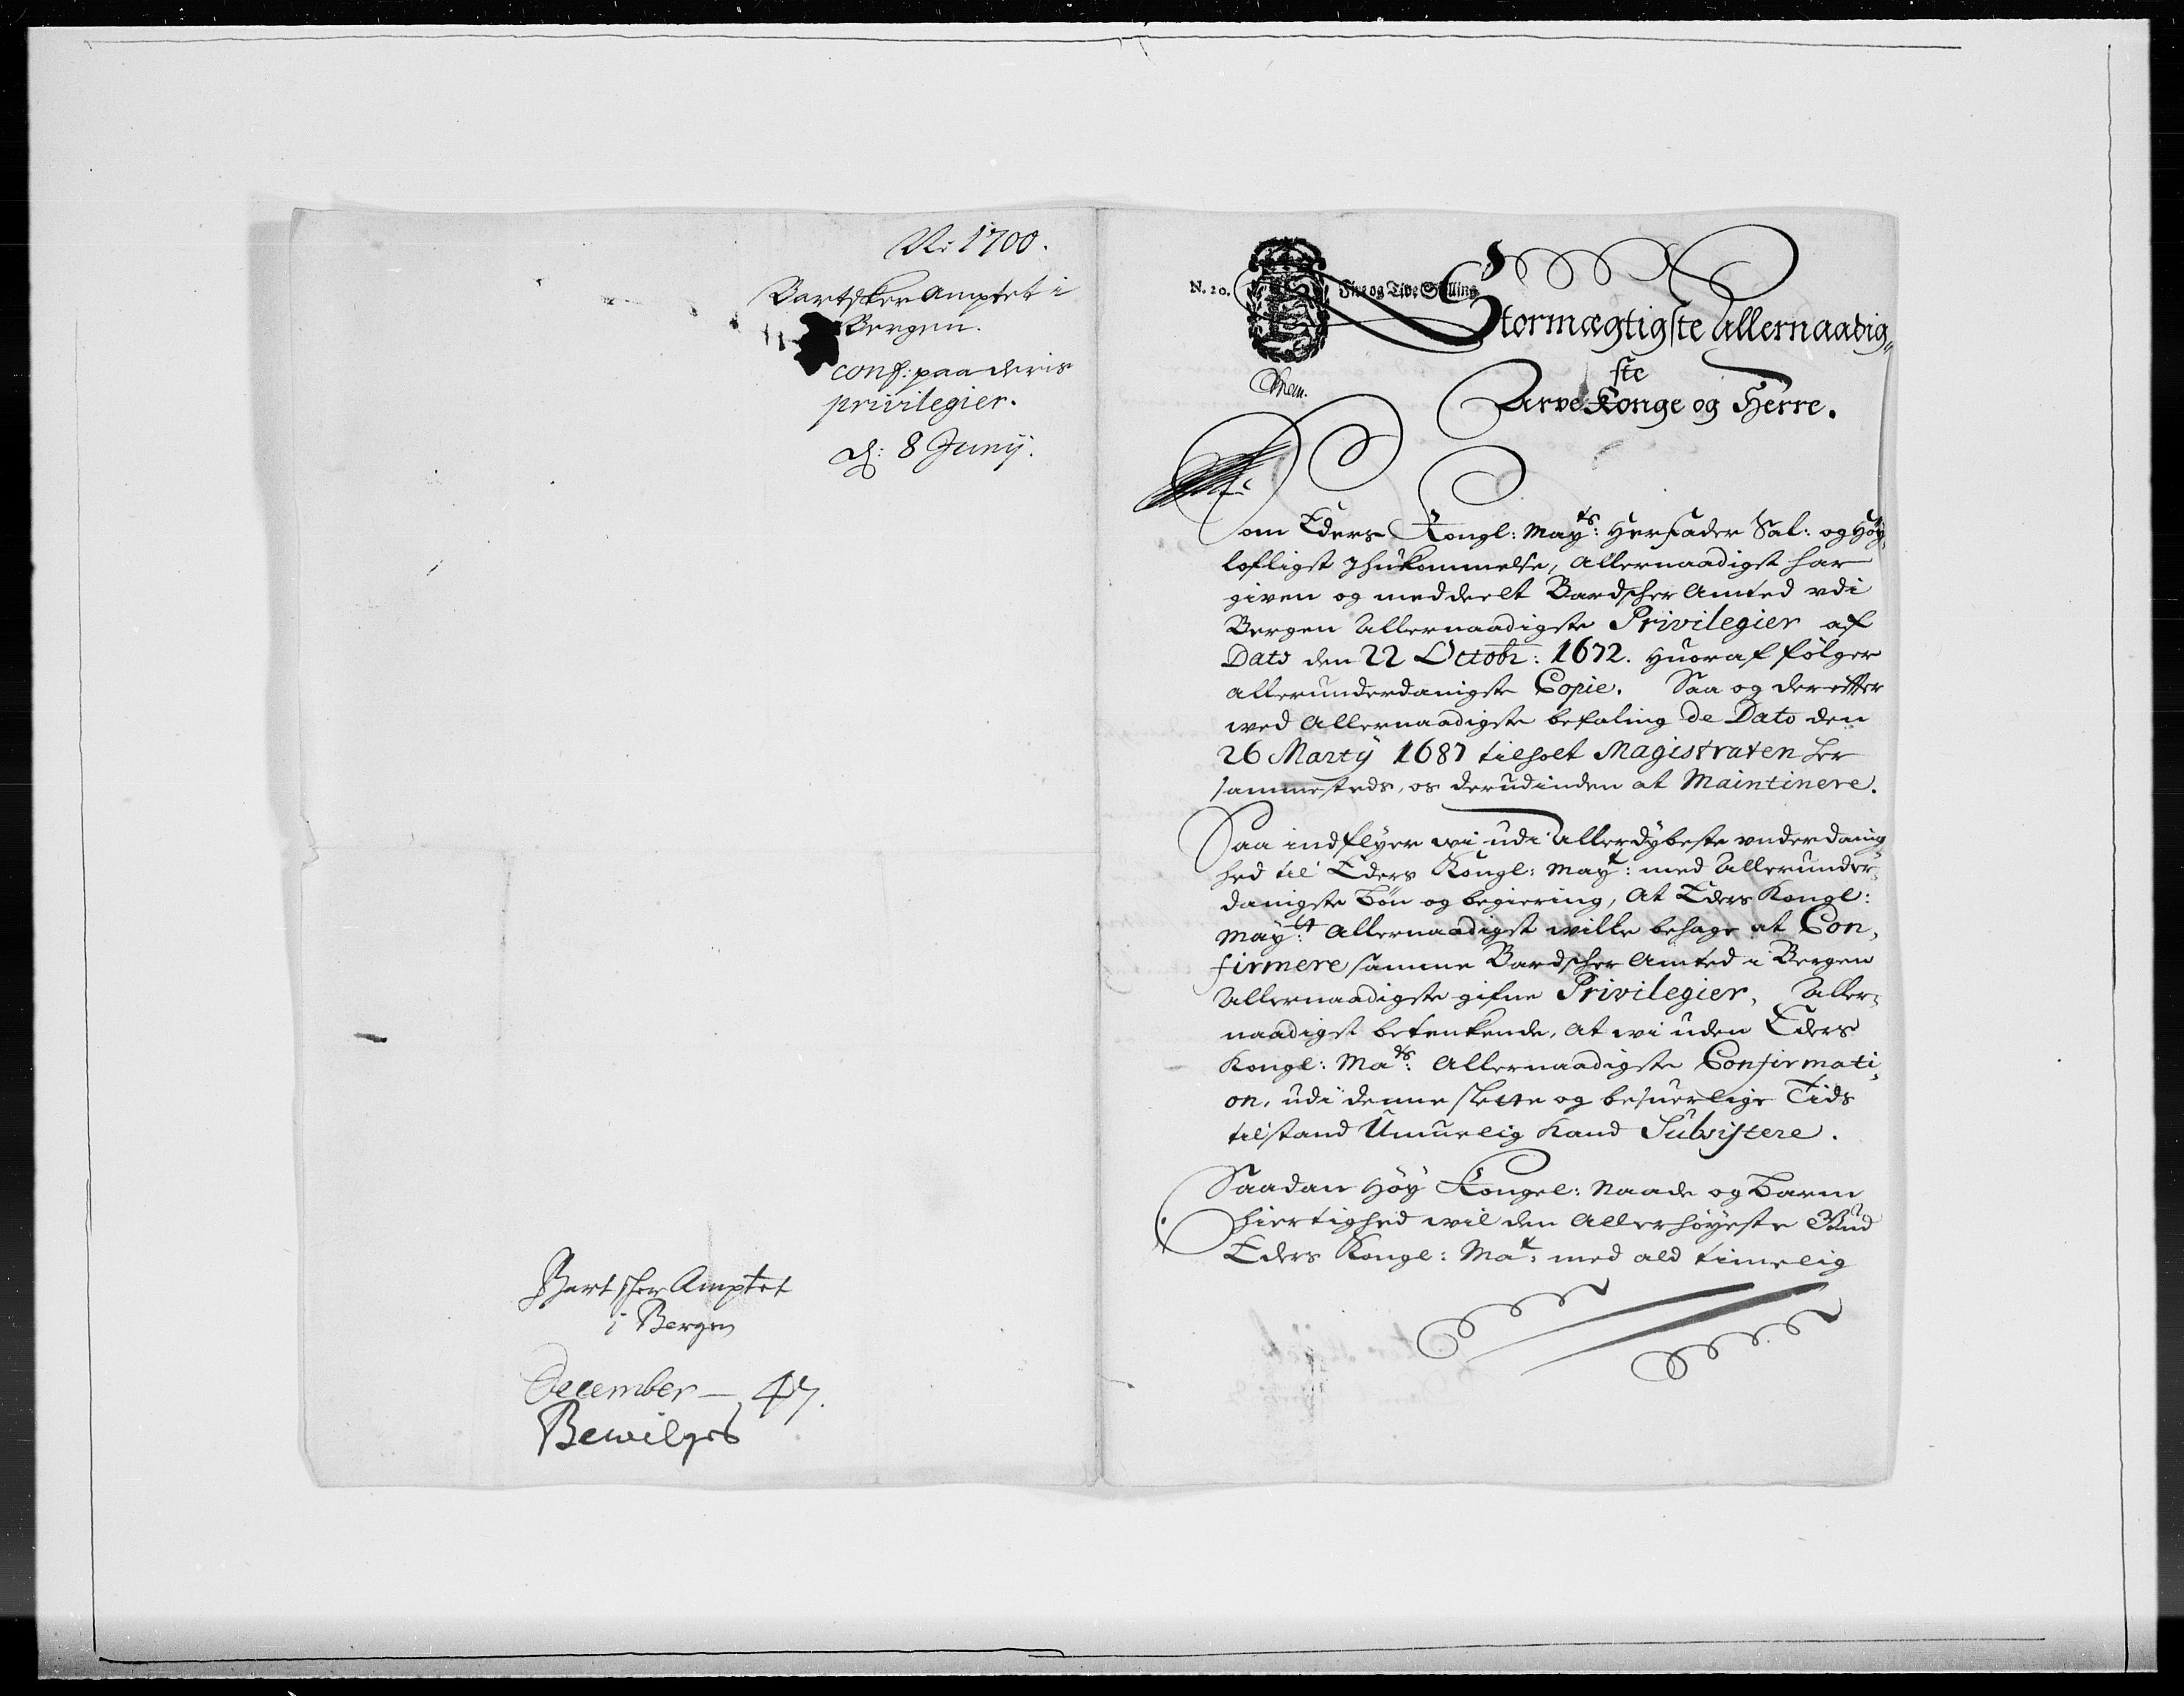 Nr 1700.
Bartsker Amptet i
Bergen.
conf: paa deris
privilegier.
d: 8 Junij.
Bartsker Amptet
i Bergen
December — 47.
Bewilges
N. 20. Fire og Tive Skilling
Stormægtigste Allernaadig„
ste
Arve Konge og Herre.
Som Eders Kongl: Mayts: Herfader Sal: og Høy„
lofligst Ihukommelse, Allernaadigst har
given og meddeelt Bardscher Amted udi
Bergen Allernaadigste Privilegier af
Dato den 22 Octobr: 1672. Huoraf følger
allerunderdanigste Copie. Saa og derefter
ved Allernaadigste befaling de Dato den
26 Martij 1687 tilholt Magistraten her
sammesteds, os derudinden at Maintinere.
Saa indflyer wi udi Allerdybeste underdanig
hed til Eders Kongl: Mayt: med Allerunder„
danigste Bøn og begiering, At Eders Kongl:
Mayt: Allernaadigst wille behage at Con„
firmere samme Bardscher Amted i Bergen
Allernaadigste gifne Privilegier, Aller„
naadigst betenkende, At wi uden Eders
Kongl: Mats: Allernaadigste Confirmati„
on, udi denne slette og besuerlige Tids
tilstand Umuelig kand Subsistere.
Saadan Høy Kongel: Naade og Barm
hiertighed wil den Allerhøyeste Gud
Eders Kongl: Mat: med ald timelig